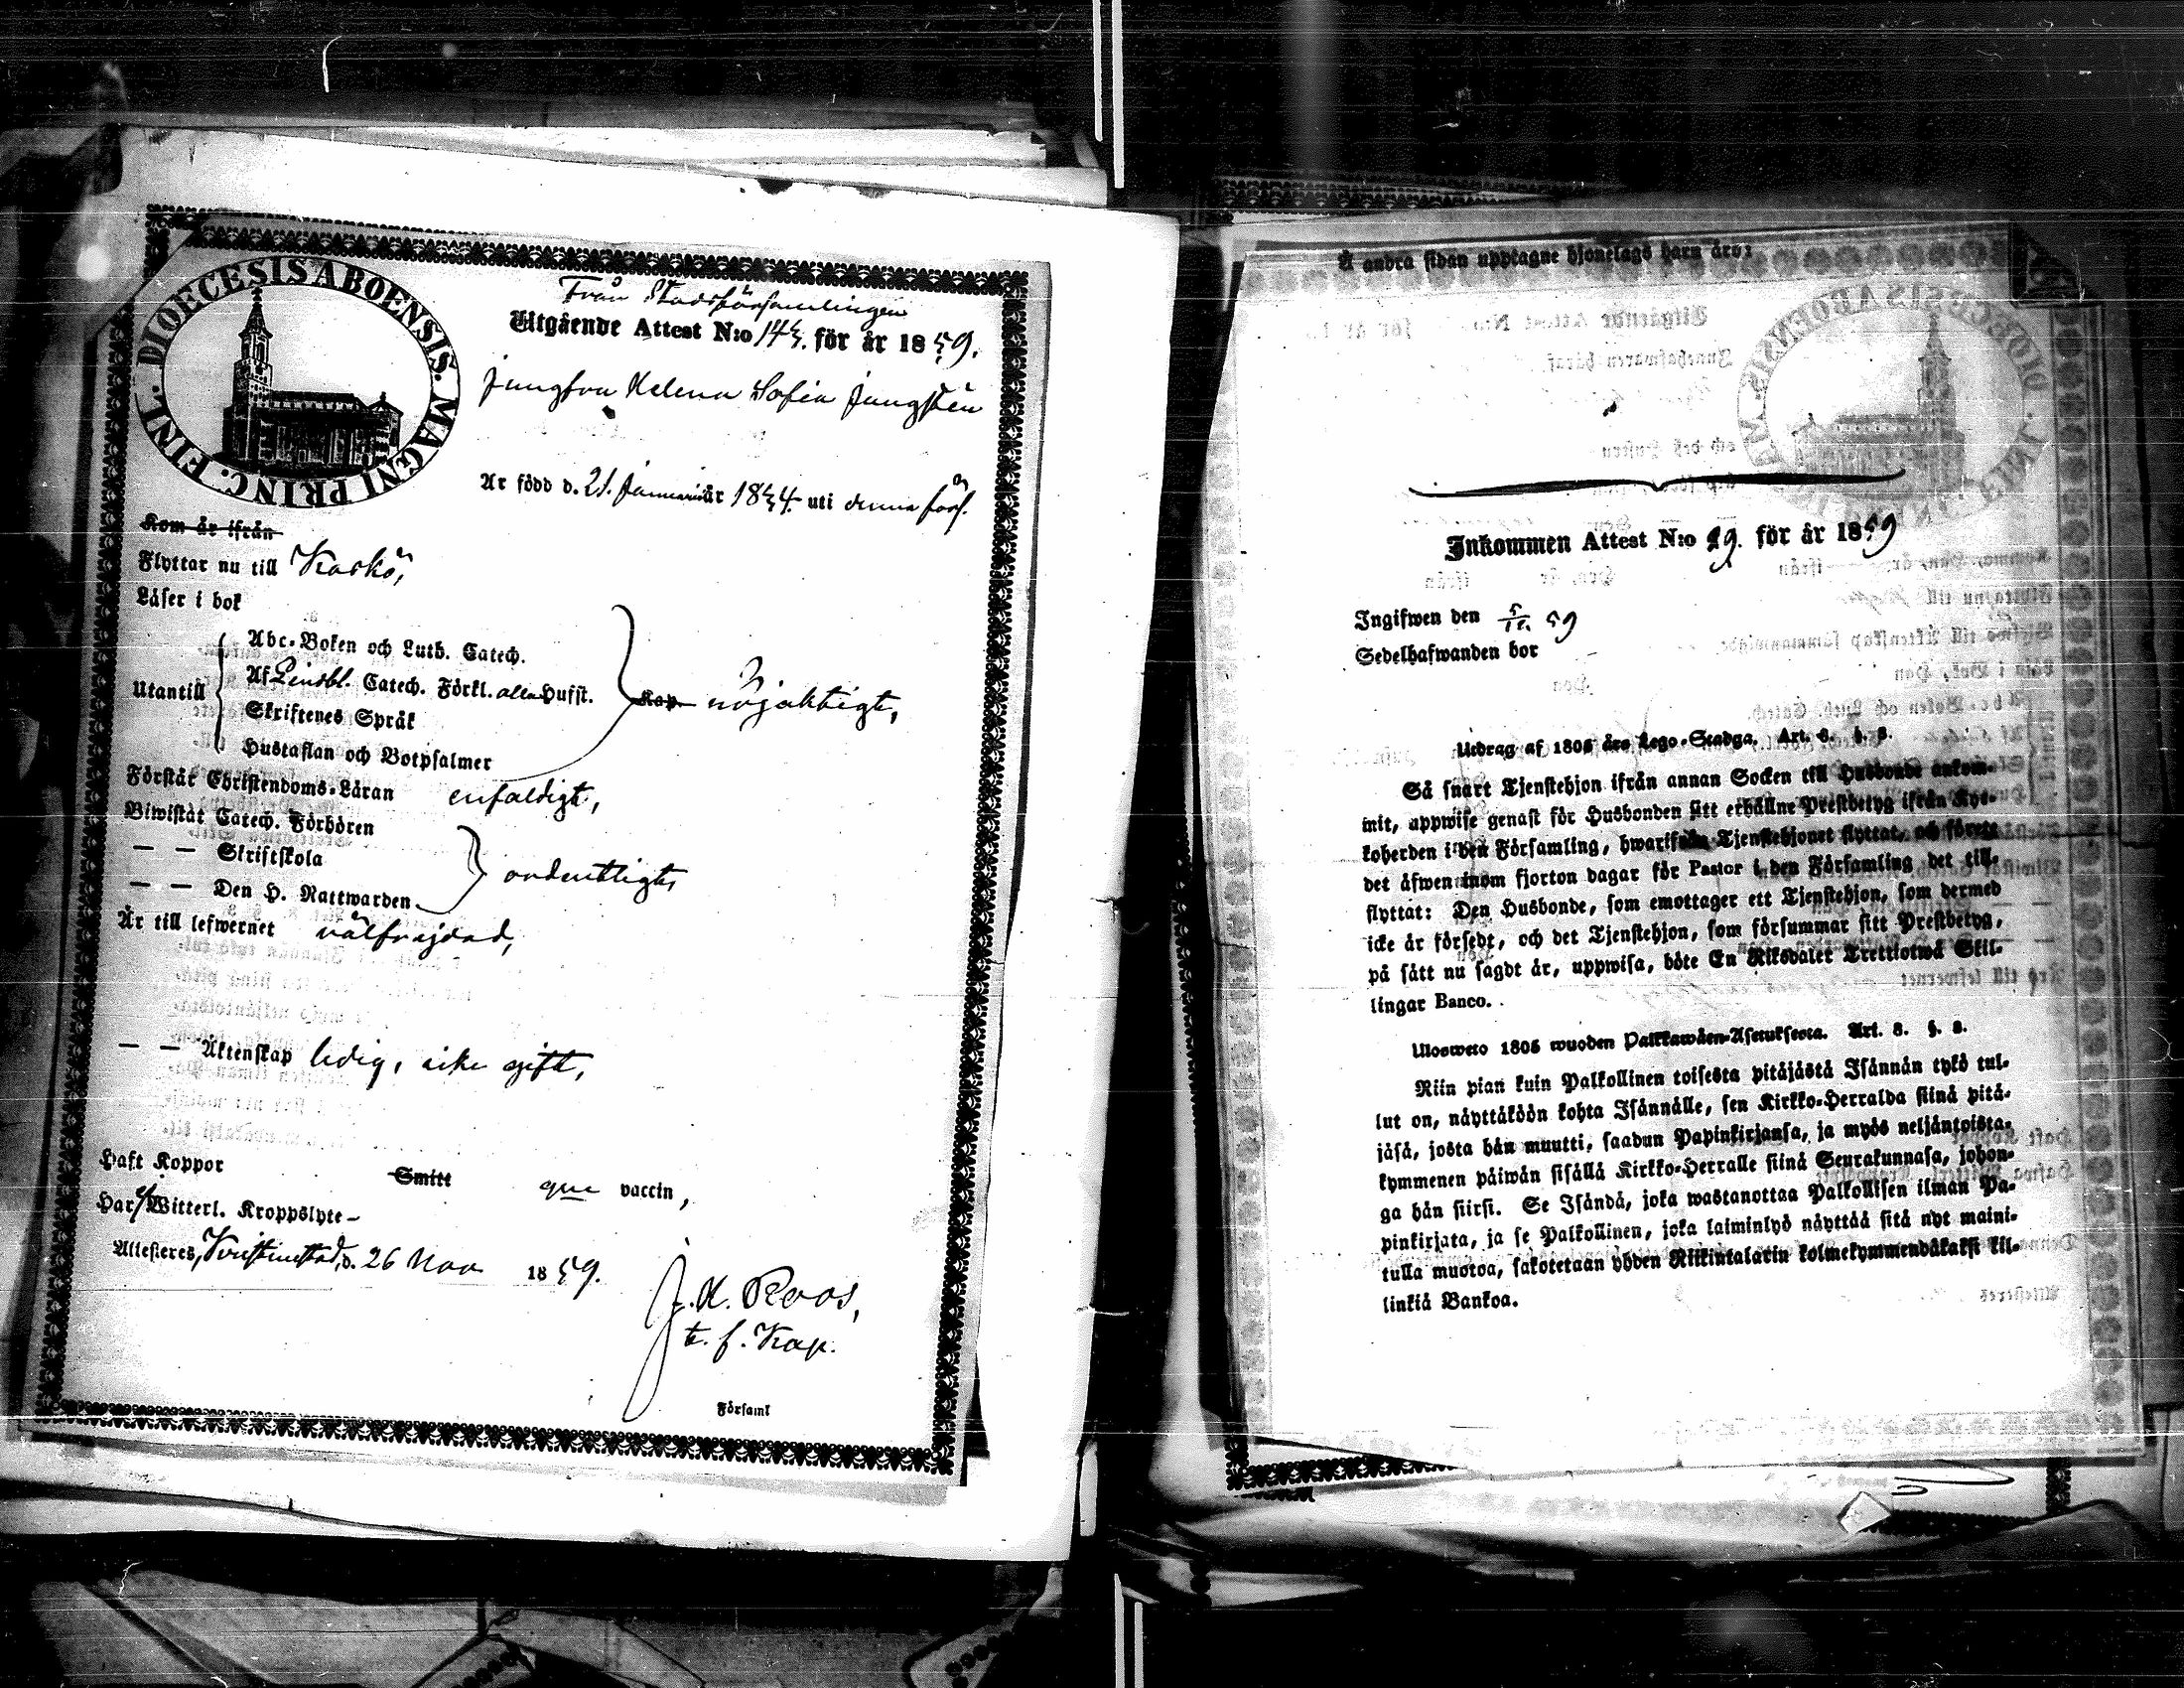 DIOECESIS ABOENSIS. MAGNI PRINC. FINL.
Från Stadsförsamlingen
Utgående Attest N:o 144. för år 1859.
Jungfru Helena Sofia Jungstén
Är född d. 21. Januarii år 1834. uti denna förs.
Kom år ifrån
Flyttar nu till Kaskö,
Läser i bok
Utantill
Abc-Boken och Luth. Catech.
Af Catech. Förkl. alla Hufst.
Skriftenes Språk
Hustaflan och Botpsalmer
Kap. nöjaktigt,
Förstår Christendoms-Läran enfaldigt,
Biwistat Catech. Förhören
— — Skriftskola
— — Den H. Nattwarden
ordentligt,
Är till lefwernet välfrejdad,
— — Äktenskap ledig, icke gift,
Haft Koppor Smitt gm vaccin,
Har ej Witterl. Kroppslyte –
Attesteres, Kristinestad, d. 26 Nov 1859.
J. K. Roos,
t. f. Kap.
Församl
Å andra sidan upptagne hjonelags barn äro:
Inkommen Attest N:o 29. för år 1859
Ingifwen den 59
Sedelhafwanden bor
Utdrag af 1805 års Lego-Stadga. Art. 8. §. 8.
Så snart Tjenstehjon ifrån annan Socken till Husbonde ankom-
mit, uppwise genast för Husbonden sitt erhållne Prestbetyg ifrån Kyr-
koherden i den Församling, hwarifrån Tjenstehjonet flyttat, och förete
det äfwen inom fjorton dagar för Pastor i den Församling det till-
flyttat: Den Husbonde, som emottager ett Tjenstehjon, som dermed
icke är försedt, och det Tjenstehjon, som försummar sitt Prestbetyg,
på sätt nu sagdt är, uppwisa, böte En Riksdaler Trettiotwå Skil-
lingar Banco.
Ulosweto 1805 wuoden Palkkawäen-Asetuksesta. Art. 8. §. 8.
Niin pian kuin Palkollinen toisesta pitäjästä Isännän tykö tul-
lut on, näyttäköön kohta Isännälle, sen Kirkko-Herralda siinä pitä-
jäsä, josta hän muutti, saadun Papinkirjansa, ja myös neljäntoista-
kymmenen päiwän sisällä Kirkko-Herralle siinä Seurakunnasa, johon-
ga hän siirsi. Se Isändä, joka wastanottaa Palkollisen ilman Pa-
pinkirjata, ja se Palkollinen, joka laiminlyö näyttää sitä nyt maini-
tulla muotoa, sakotetaan yhden Riikintalarin kolmekymmendäkaksi kil-
linkiä Bankoa.